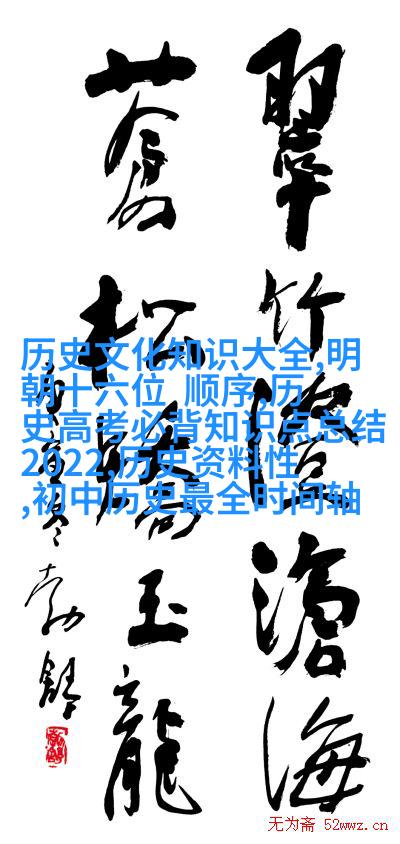 翠竹滄海
蒼松玉龍
历史文化知识大全,明
朝十六位 顺序,历
史高考必背知识点总结
2022,历史资料性
,初中历史最全时间轴
无为斋 52wwz.cn